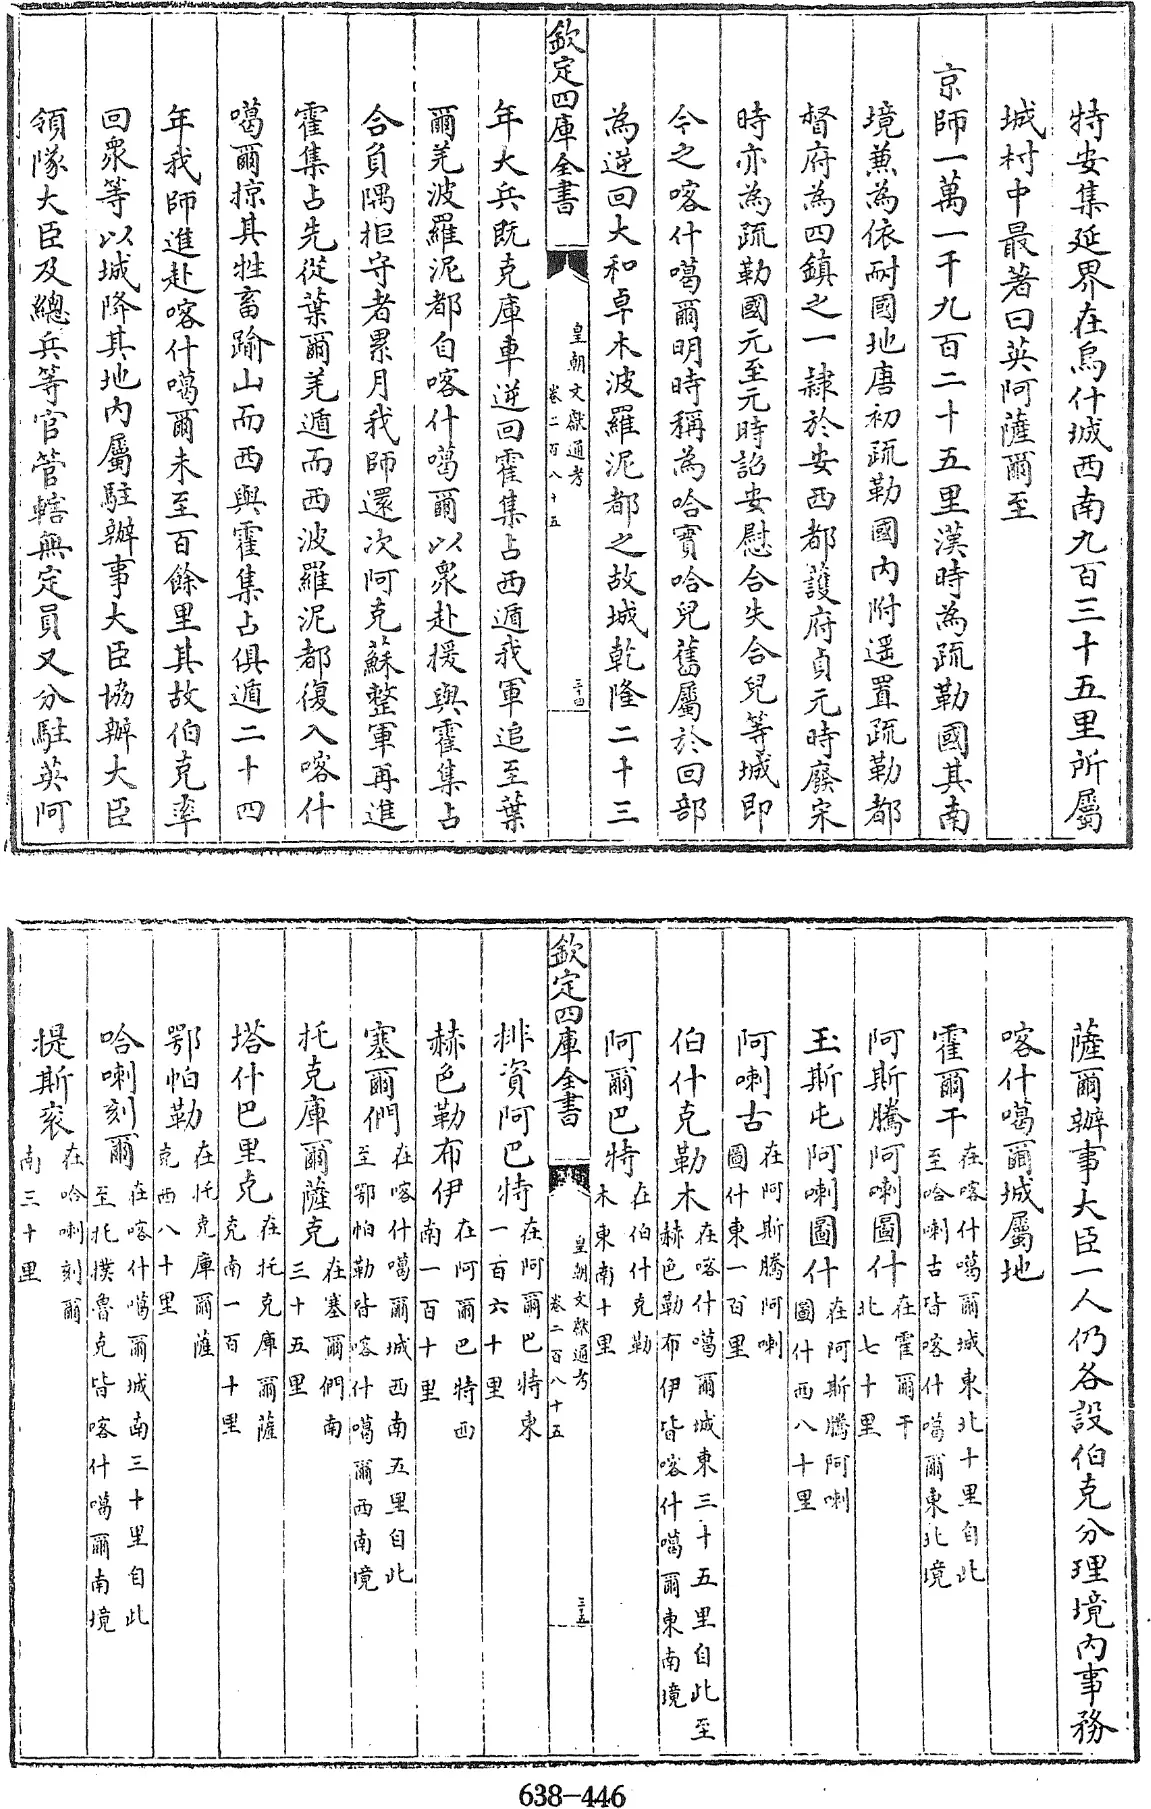 特安集延界在烏什城西南九百三十五里所屬
城村中最著曰英阿薩爾至
京師一萬一千九百二十五里漢時為疏勒國其南
境兼為依耐國地唐初疏勒國內附遥置疏勒都
督府為四鎮之一隸於安西都護府貞元時廢宋
時亦為疏勒國元至元時詔安慰合失合兒等城即
今之喀什噶爾明時稱為哈實哈兒舊屬於回部
為逆回大和卓木波羅泥都之故城乾隆二十三
欽定四庫全書
皇朝文獻通考
卷二百八十五
三十四
年大兵既克庫車逆回霍集占西遁我軍追至葉
爾羌波羅泥都自喀什噶爾以衆赴援與霍集占
合負隅拒守者累月我師還次阿克蘇整軍再進
霍集占先從葉爾羌遁而西波羅泥都復入喀什
噶爾掠其牲畜踰山而西與霍集占俱遁二十四
年我師進赴喀什噶爾未至百餘里其故伯克率
回衆等以城降其地內屬駐辦事大臣協辦大臣
領隊大臣及總兵等官管轄無定員又分駐英阿
薩爾辦事大臣一人仍各設伯克分理境內事務
喀什噶爾城屬地
霍爾干 在喀什噶爾城東北十里自此
至哈喇古皆喀什噶爾東北境
阿斯騰阿喇圖什 在霍爾干
北七十里
玉斯屯阿喇圖什 在阿斯騰阿喇
圖什西八十里
阿喇古 在阿斯騰阿喇
圖什東一百里
伯什克勒木 在喀什噶爾城東三十五里自此至
赫色勒布伊皆喀什噶爾東南境
阿爾巴特 在伯什克勒
木東南十里
欽定四庫全書
皇朝文獻通考
卷二百八十五
三十五
排資阿巴特 在阿爾巴特東
一百六十里
赫色勒布伊 在阿爾巴特西
南一百十里
塞爾們 在喀什噶爾城西南五里自此
至鄂帕勒皆喀什噶爾西南境
托克庫爾薩克 在塞爾們南
三十五里
塔什巴里克 在托克庫爾薩
克南一百十里
鄂帕勒 在托克庫爾薩
克西八十里
哈喇刻爾 在喀什噶爾城南三十里自此
至托撲魯克皆喀什噶爾南境
提斯衮 在哈喇刻爾
南三十里
638-446